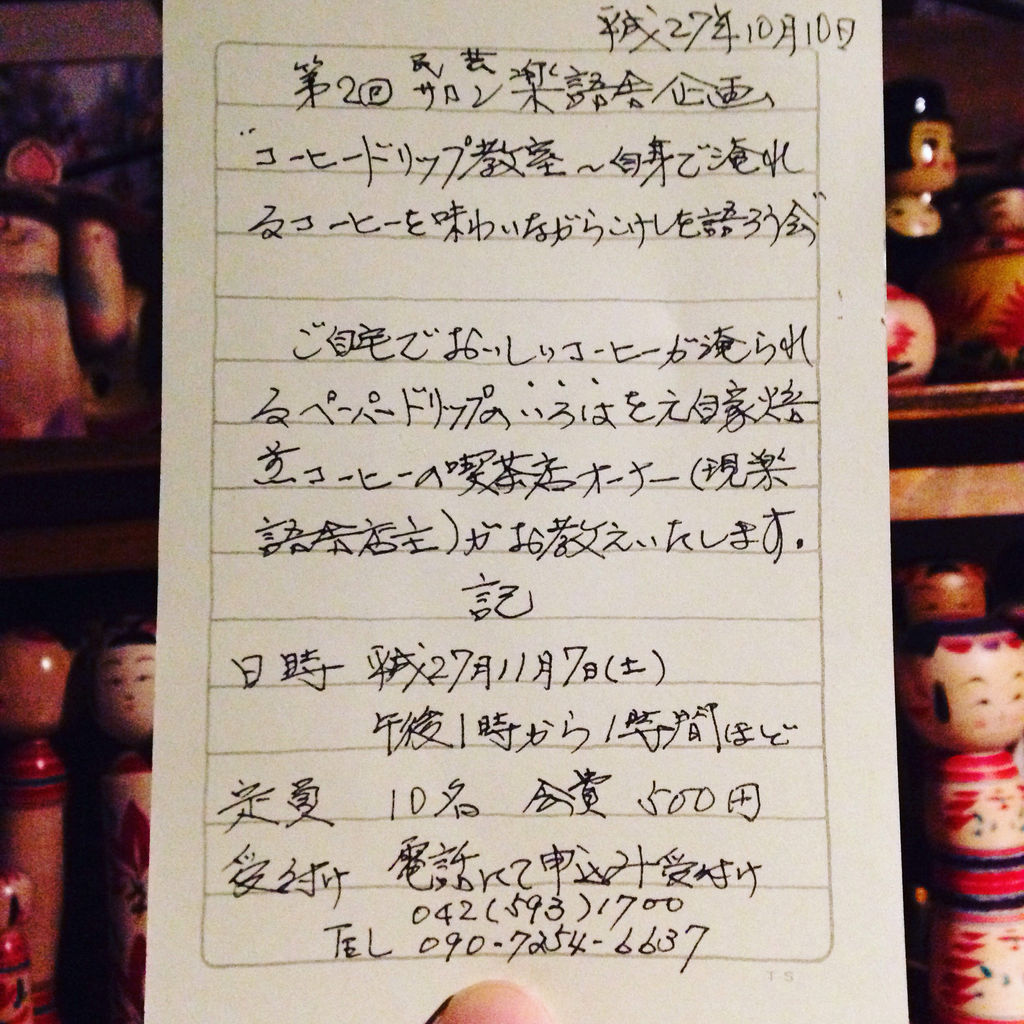 平成27年10月10日
民芸
第2回 サロン 楽語舎 企画
"コーヒードリップ教室～自身で淹れ
るコーヒーを味わいながらこけしを語ろう会"
ご自宅でおいしいコーヒーが淹られ
るペーパードリップのいろはを元自家焙
煎コーヒーの喫茶店オーナー(現楽
語舎店主)がお教えいたします.
記
日時 平成27月11月7日(土)
午後1時から1時間ほど
定員 10名 会費 500円
受付け 電話にて申込み受付け
042(593)1700
TEL 090-7254-6637
TS